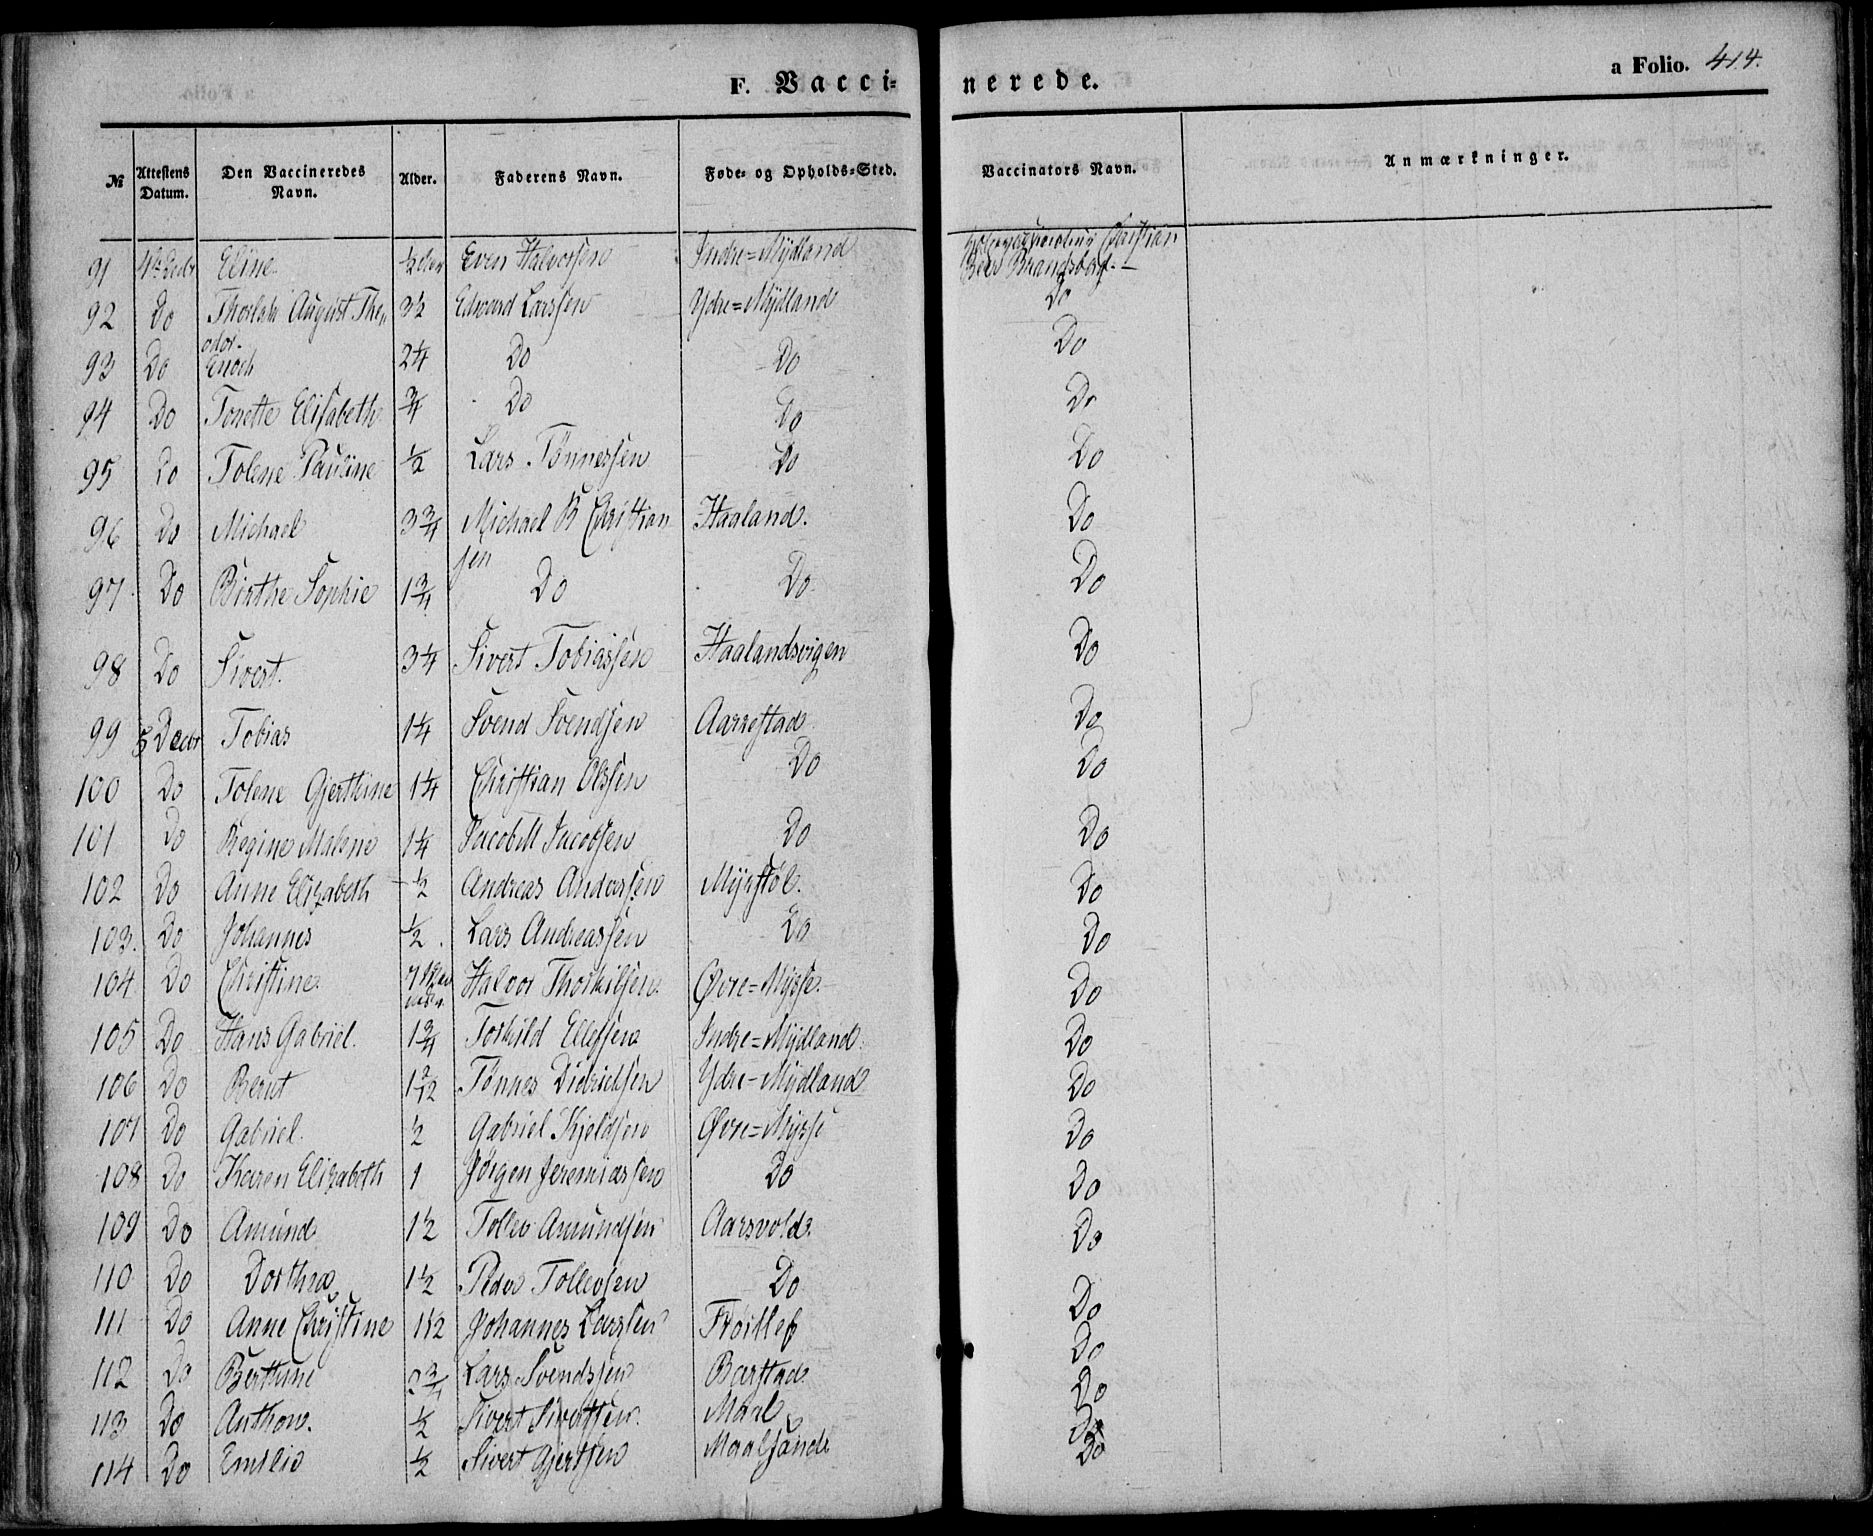 F. Vacci-
nerede.
a Folio. 414.
№ Attestens Datum. Den Vaccineredes Navn. Alder. Faderens Navn. Føde- og Opholds-Sted. Vaccinators Navn. Anmærkninger.
91 4de Decbr Eline ½ Even Halvorsen Indre=Mydland Christian
92 Do August The- 3½ Edvard Larssen Ydre=Mydland Do
odor.
93 Do Enoch 2¼ Do Do Do
94 Do Tonette Elisabeth ¾ Do Do Do
95 Do Tolene Pauline ½ Lars Tønnessen Do Do
96 Do Michael 3¾ Michael B Christian Haaland. Do
sen
97 Do Birthe Sophie 1¾ Do Do Do
98 Do Sivert. 3¼ Sivert Tobiassen Haalandsvigen Do
99 5 Decbr Tobias 1¼ Svend Svendsen Aarrestad Do
100 Do Tolene Gjerthine 1¼ Christian Olssen Do Do
101 Do Regine Malene 1¼ Jacob M Jacobsen Do Do
102 Do Anne Elizabeth ½ Andreas Anderssen Myrstøl. Do
103. Do Johannes ½ Lars Andreassen Do Do
104 Do Christine 7 Halvor Thorkilsen Øvre=Mysse. Do
105 Do Hans Gabriel. 1¾ Torkild Ellefsen Indre=Mydland Do
106 Do Bernt 1 2/12 Tønnes Didrichsen Ydre=Mydland Do
107 Do Gabriel. ½ Gabriel Kjeldsen Øvre=Mysse Do
108 Do Karen Elizabeth 1 Jørgen Jeremiassen Do Do
109 Do Amund 1½ Tollev Amundsen Aarsvold. Do
110 Do Dorthea 1½ Peder Tollevsen Do Do
111 Do Anne Christine 1½ Johannes Larssen Do
112 Do Berthine 2¾ Lars Svendssen Barstad Do
113 Do Anthon. ½ Sivert Sivertsen. Do
114 Do Emilie ½ Sivert Gjertsen Do